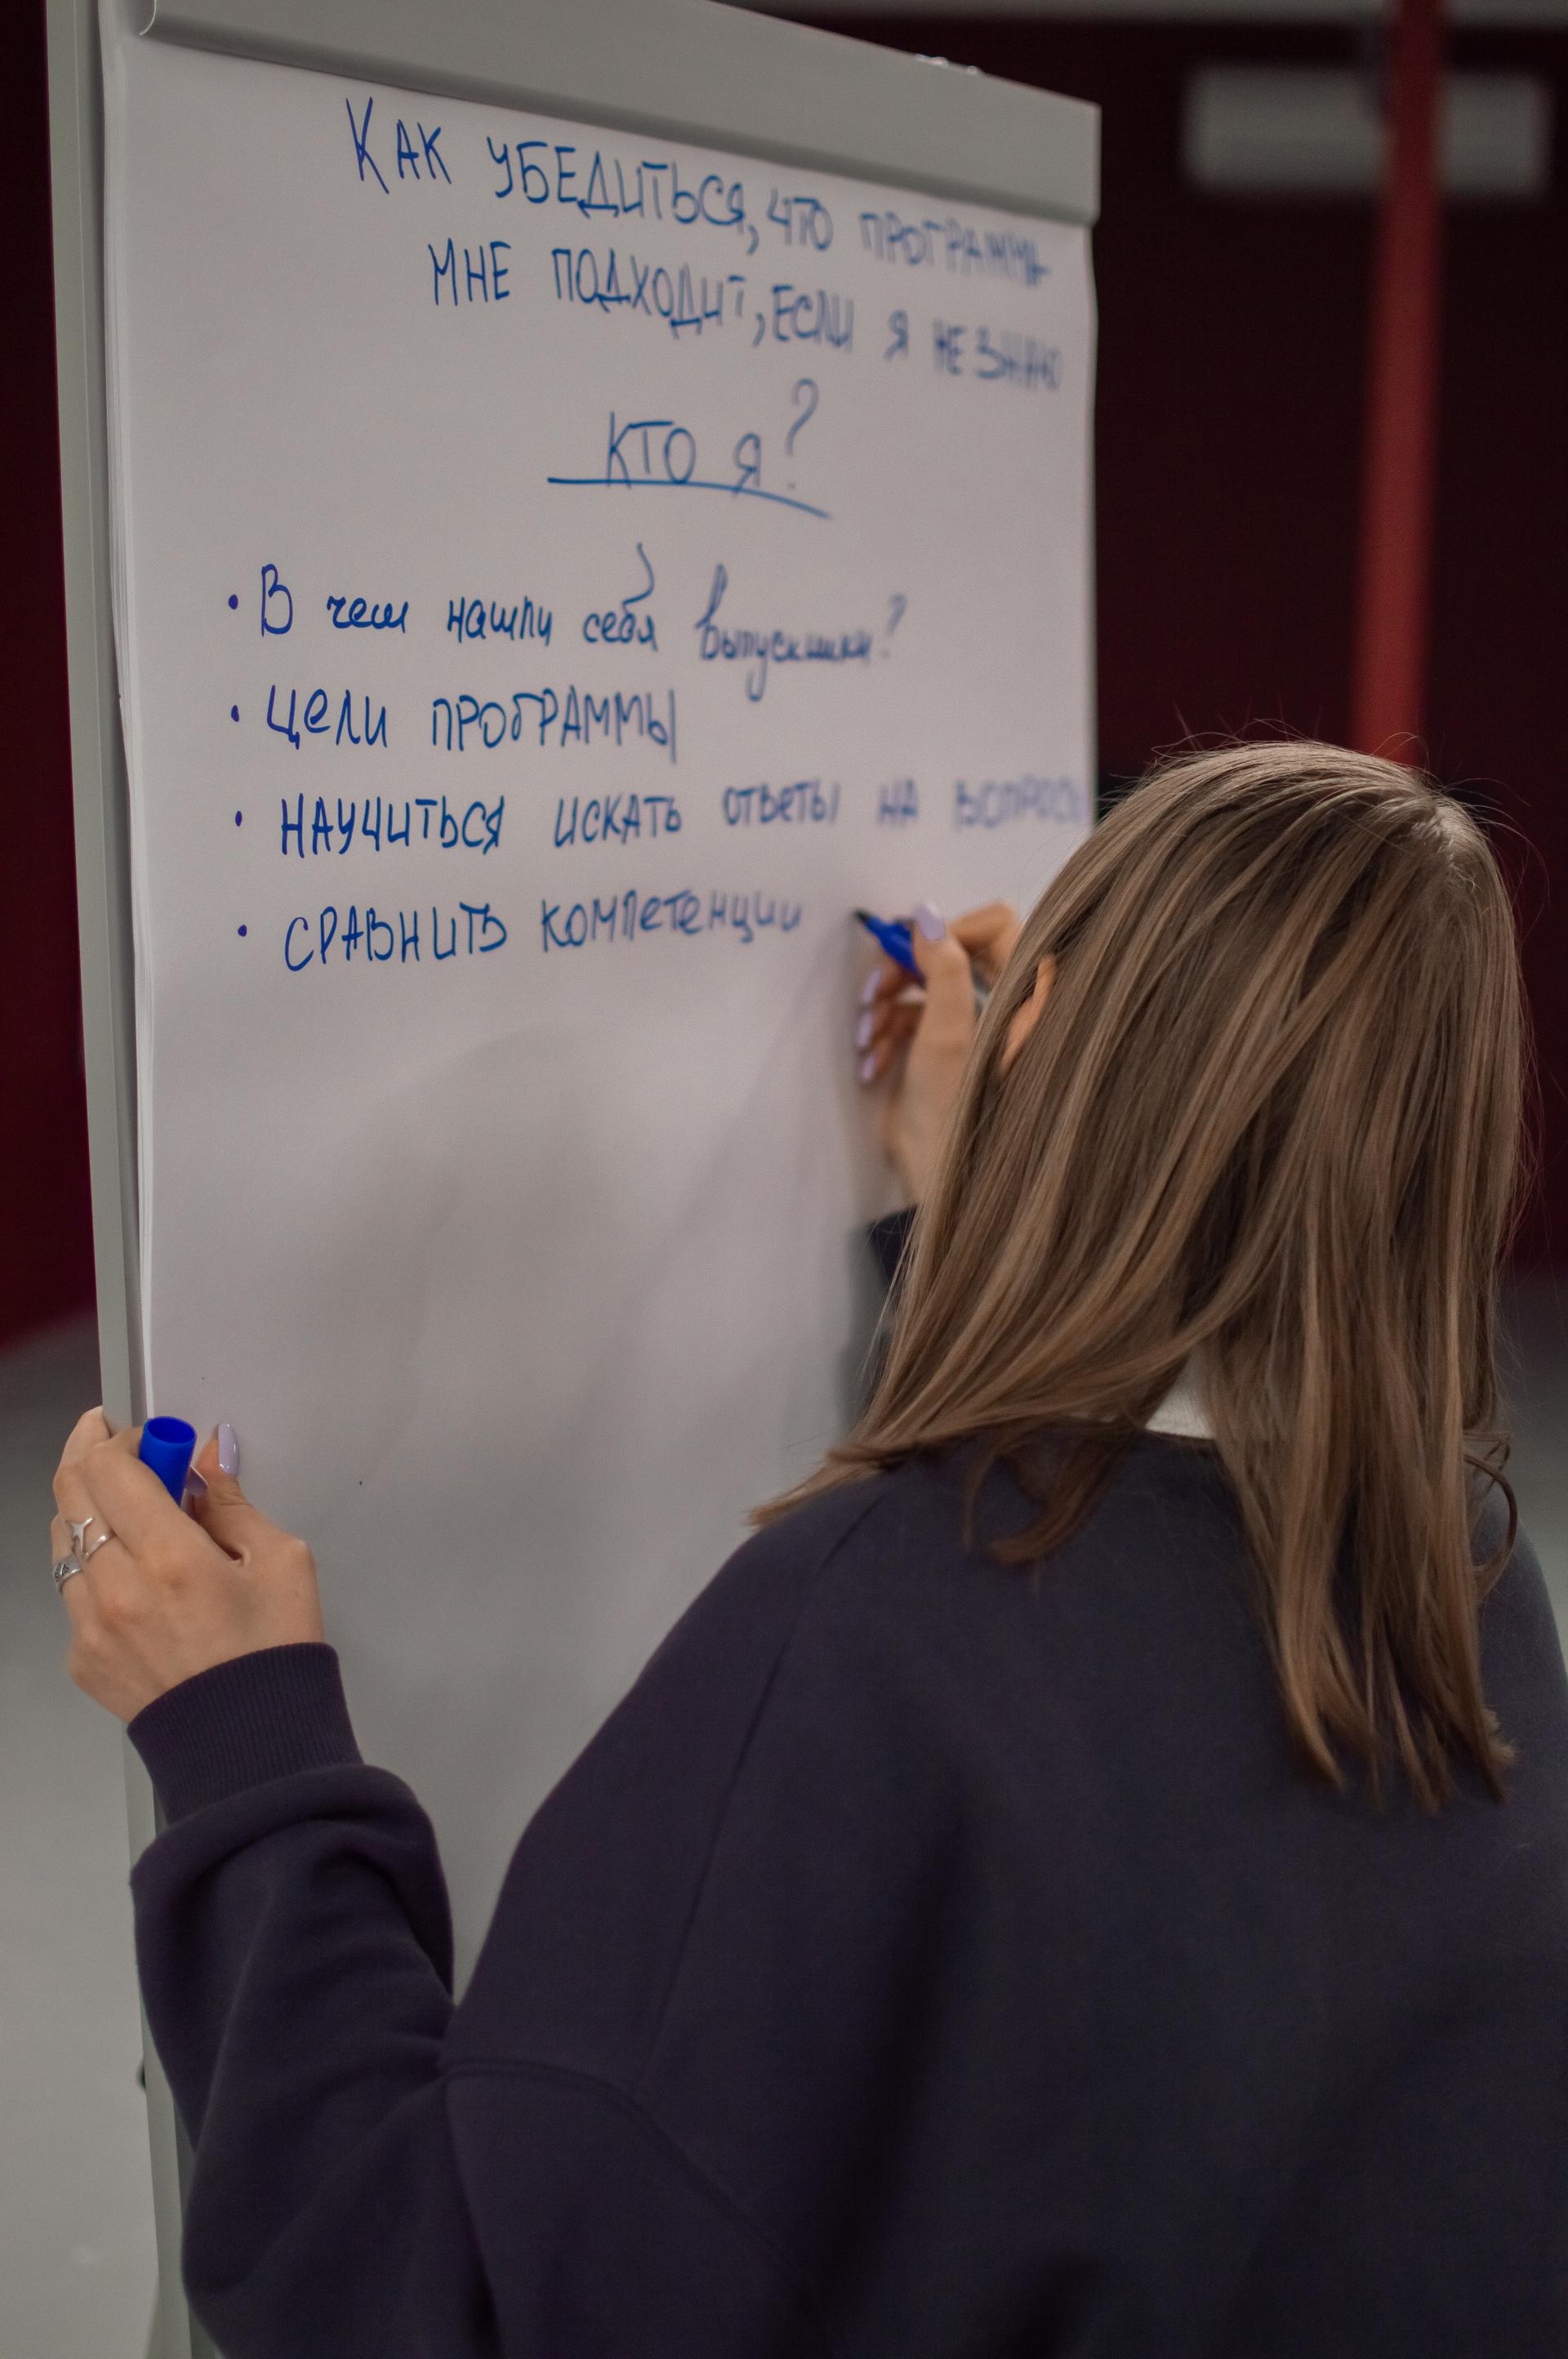 Как убедиться, что программа
мне подходит, если я не знаю
кто я?
• В чем нашли себя выпускники?
• Цели программы
• Научиться искать ответы на вопросы
• Сравнить компетенции